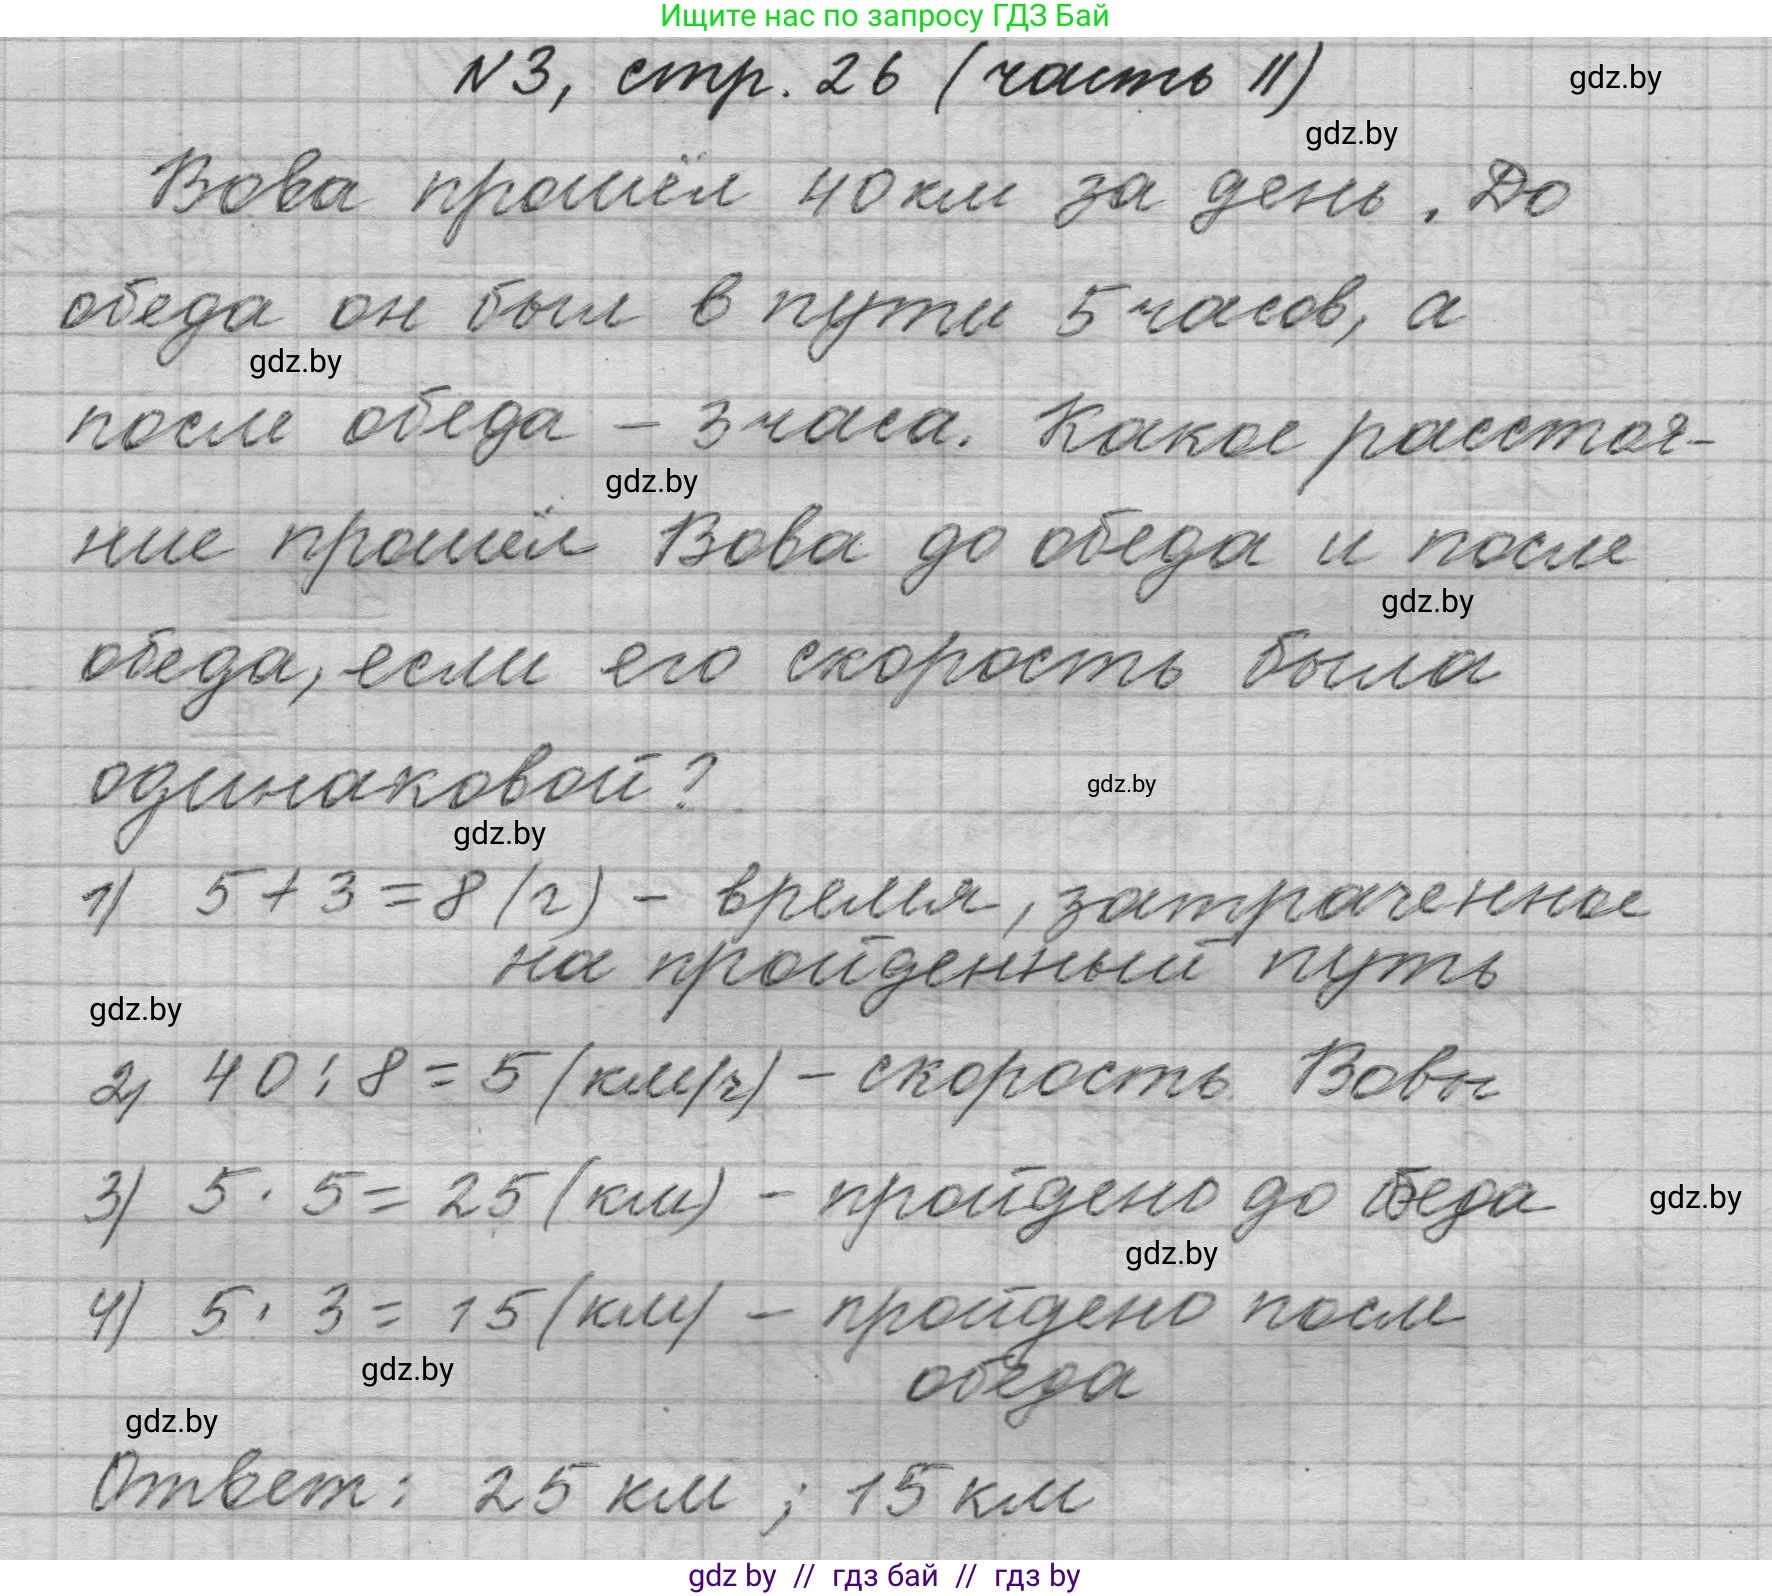 Ищите нас по запросу ГДЗ Бай
N3, стр. 26 (часть II)
gdz.by
gdz.by
Вова прошёл 40 км за день. До
обеда он был в пути 5 часов, а
gdz.by
после обеда – 3 часа. Какое расстоя-
gdz.by
ние прошёл Вова до обеда и после
gdz.by
обеда, если его скорость была
одинаковой?
gdz.by
gdz.by
1) 5 + 3 = 8 (ч) – время, затраченное
на пройденный путь
gdz.by
2) 40 : 8 = 5 (км/ч) – скорость Вовы
3) 5 · 5 = 25 (км) – пройдено до обеда
gdz.by
gdz.by
4) 5 · 3 = 15 (км) – пройдено после
обеда
gdz.by
gdz.by
Ответ: 25 км ; 15 км
gdz by // гдз бай // гдз by